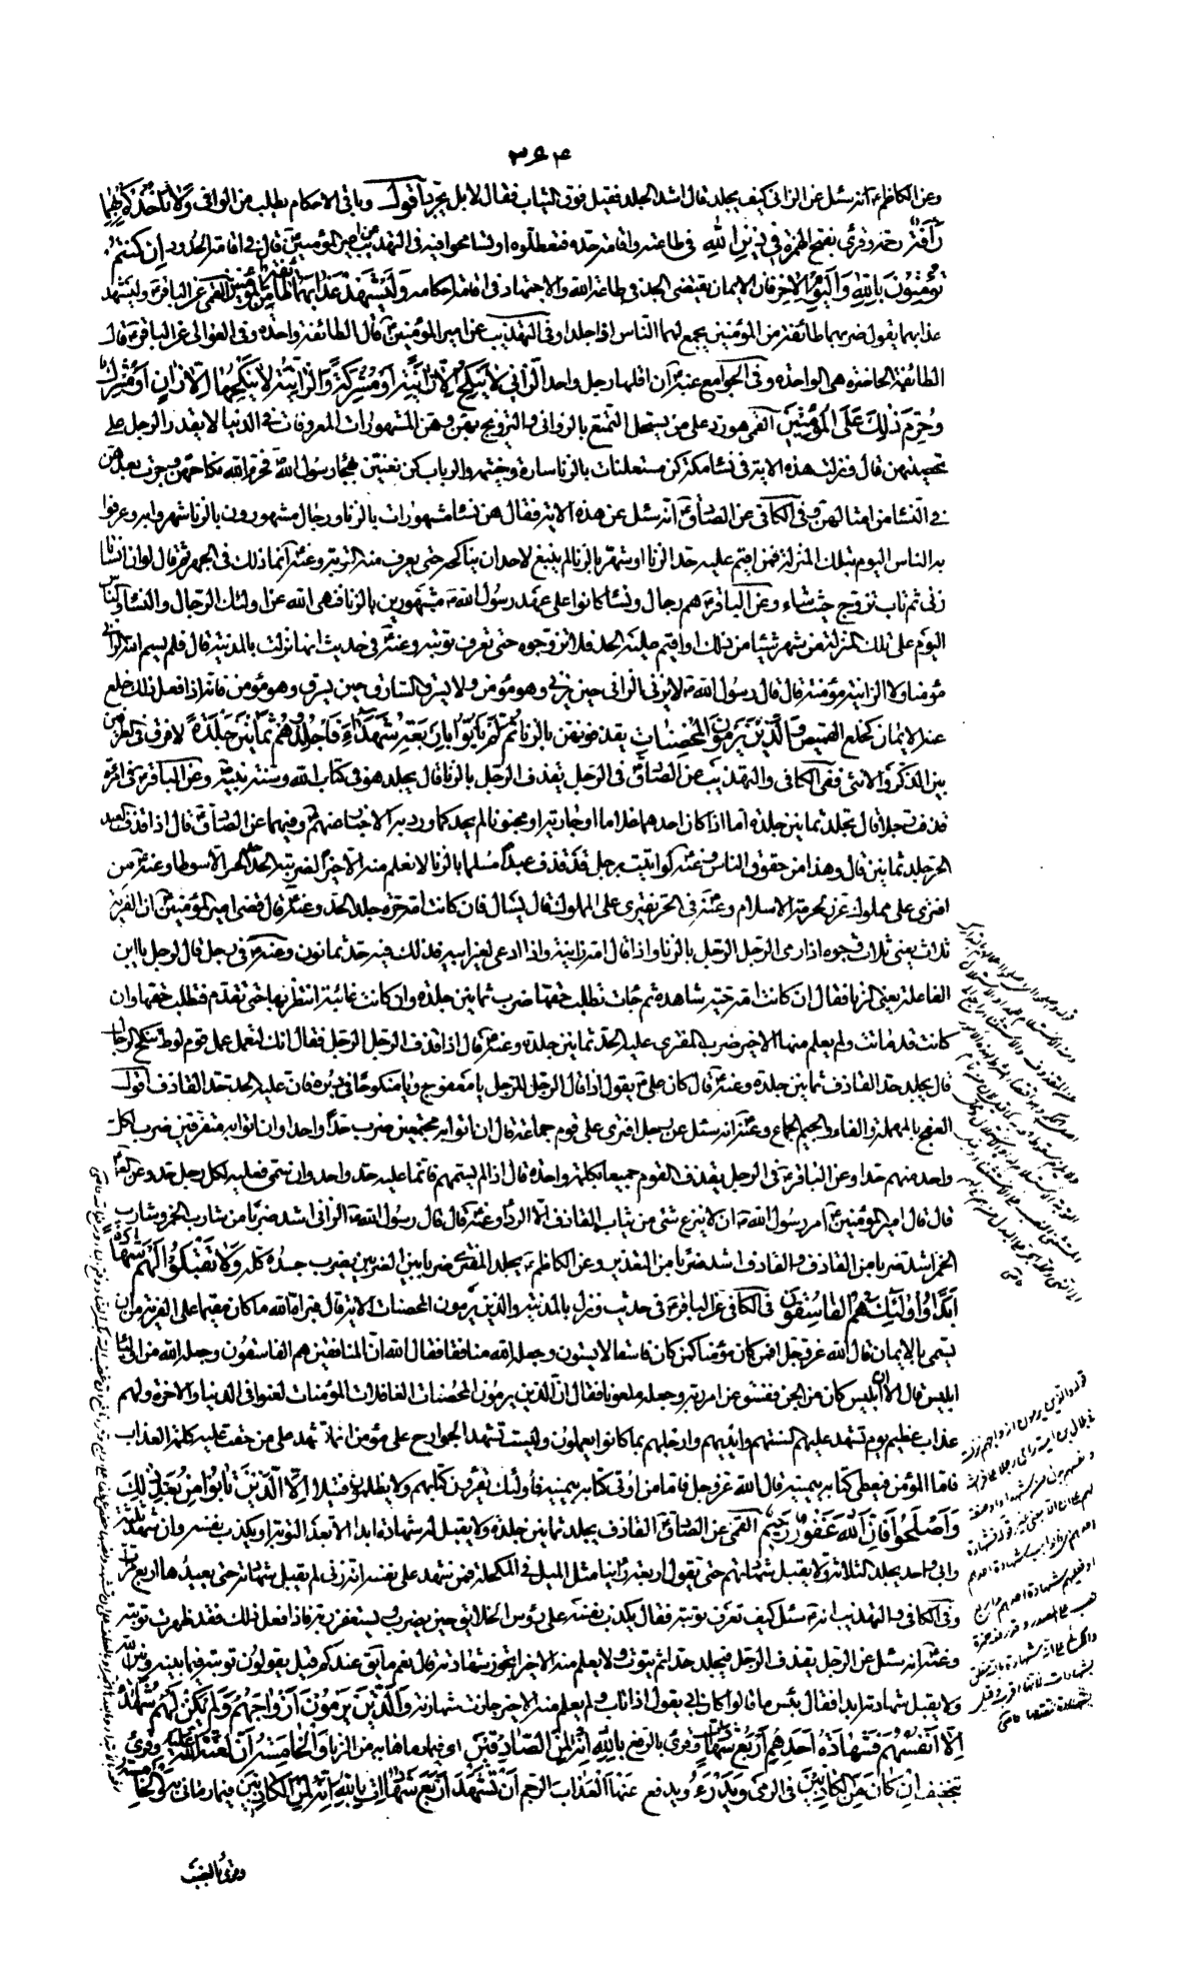 ٣٦٤
وعن الكاظم ع انه سئل عن الزاني كيف يجلد قال اشد الجلد فقيل فوق الثياب فقال لا بل يجرد اقول وباقي الاحكام يطلب من الوافي وَلا تَأْخُذْكُمْ بِهِما
رَأْفَةٌ رحمة وقرئ بفتح الهمزة في دِينِ اللهِ في طاعته واقامة حده فتعطلوه او تسامحوا فيه في التهذيب عن امير المؤمنين ع قال في اقامة الحدود اِنْ كُنْتُمْ
تُؤْمِنُونَ بِاللهِ وَالْيَوْمِ الْآخِرِ فان الايمان يقتضي الجد في طاعة الله والاجتهاد في اقامة احكامه وَلْيَشْهَدْ عَذابَهُما طائِفَةٌ مِنَ الْمُؤْمِنِينَ القمي عن الباقر ع وليشهد
عذابهما يقول ضربهما طائفة من المؤمنين يجمع لهما الناس اذا جلدوا وفي التهذيب عن امير المؤمنين ع قال الطائفة واحد وفي الغوالي عن الباقر ع قال
الطائفة الحاضرة هي الواحدة وفي الجوامع عنه ع ان اقلها رجل واحد اَلزّانِي لا يَنْكِحُ اِلّا زانِيَةً اَوْ مُشْرِكَةً وَالزّانِيَةُ لا يَنْكِحُها اِلّا زانٍ اَوْ مُشْرِكٌ
وَحُرِّمَ ذلِكَ عَلَى الْمُؤْمِنِينَ القمي هو رد على من يستحل التمتع بالزواني والتزويج بهن وهن المشهورات المعروفات في الدنيا لا يقدر الرجل على
تحصينهن قال ونزلت هذه الآية في نساء مكة كن مستعلنات بالزنا سارة وحنتمة والرباب كن يغنين بهجاء رسول الله ص فحرم الله نكاحهن وجرت بعدهن
في النساء من امثالهن وفي الكافي عن الصادق ع انه سئل عن هذه الآية فقال هن نساء مشهورات بالزنا ورجال مشهورون بالزنا شهروا به وعرفوا
به الناس اليوم بتلك المنزلة فمن اقيم عليه حد الزنا او شهر بالزنا لم ينبغ لاحد ان يناكحه حتى يعرف منه التوبة وعنه ع انما ذلك في الجهر ثم قال لو ان انسانا
زنى ثم تاب تزوج حيث شاء وعن الباقر ع هم رجال ونساء كانوا على عهد رسول الله ص مشهورين بالزنا فنهى الله عن اولئك الرجال والنساء والناس
اليوم على تلك المنزلة من شهر شيئا من ذلك او اقيم عليه الحد فلا تزوجوه حتى تعرف توبته وعنه ع في حديث انها نزلت بالمدينة قال فلم يسم الله الزاني
مؤمنا ولا الزانية مؤمنة قال قال رسول الله ص لا يزني الزاني حين يزني وهو مؤمن ولا يسرق السارق حين يسرق وهو مؤمن فانه اذا فعل ذلك خلع
عنه الايمان كخلع القميص وَالَّذِينَ يَرْمُونَ الْمُحْصَناتِ يقذفونهن بالزنا ثُمَّ لَمْ يَأْتُوا بِاَرْبَعَةِ شُهَداءَ فَاجْلِدُوهُمْ ثَمانِينَ جَلْدَةً لا فرق في الطرفين
بين الذكر والانثى ففي الكافي والتهذيب عن الصادق ع في الرجل يقذف الرجل بالزنا قال يجلد هو في كتاب الله وسنة نبيه وعن الباقر ع في امرأة
قذفت رجلا قال تجلد ثمانين جلدة اما اذا كان احدهما غلاما او جارية او مجنونا لم يحد كما ورد به الاخبار عنهم وفيهما عن الصادق ع قال اذا قذف العبد
الحر جلد ثمانين قال وهذا من حقوق الناس وعنه ع لو اتيت برجل قد قذف عبدا مسلما بالزنا لا نعلم منه الا خيرا لضربته الحد حد الحر الا سوطا وعنه ع من
افترى على مملوك عزر لحرمة الاسلام وعنه ع في الحر يفتري على المملوك قال يسأل فان كانت امه حرة جلد الحد وعنه ع قال قضى امير المؤمنين ع ان الفرية
ثلاث يعني ثلاث وجوه اذا رمى الرجل الرجل بالزنا واذا قال ان امه زانية واذا ادعى لغير ابيه فذلك فيه حد ثمانون وعنه ع في رجل قال لرجل يا ابن
الفاعلة يعني الزنا فقال ان كانت امه حية شاهدة ثم جاءت تطلب حقها ضرب ثمانين جلدة وان كانت غائبة انتظر بها حتى تقدم فتطلب حقها وان
كانت قد ماتت ولم يعلم منها الا خير ضرب المفتري عليها الحد ثمانين جلدة وعنه ع قال اذا قذف الرجل الرجل فقال انك لتعمل عمل قوم لوط تنكح الرجال
قال يجلد حد القاذف ثمانين جلدة وعنه ع قال كان علي ع يقول اذا قال الرجل للرجل يا معفوج ويا منكوحا في دبره فان عليه الحد حد القاذف اقول
العفج بالمهملة والفاء والجيم الجماع وعنه ع انه سئل عن رجل افترى على قوم جماعة قال ان اتوا به مجتمعين ضرب حدا واحدا وان اتوا به متفرقين ضرب لكل
واحد منهم حدا وعن الباقر ع في الرجل يقذف القوم جميعا بكلمة واحدة قال اذا لم يسمهم فانما عليه حد واحد وان سمى فعليه لكل رجل حد وعن الصادق ع
قال قال امير المؤمنين ع امر رسول الله ص ان لا ينزع شئ من ثياب القاذف الا الرداء وعنه ع قال قال رسول الله ص الزاني اشد ضربا من شارب الخمر وشارب
الخمر اشد ضربا من القاذف والقاذف اشد ضربا من التعزير وعن الكاظم ع يجلد المفتري ضربا بين الضربين يضرب جسده كله وَلا تَقْبَلُوا لَهُمْ شَهادَةً
اَبَدًا وَاُولئِكَ هُمُ الْفاسِقُونَ في الكافي عن الباقر ع في حديث ونزل بالمدينة والذين يرمون المحصنات الآية قال فبرأه الله ما كان مقيما على الفرية من ان
يسمى بالايمان قال الله عز وجل افمن كان مؤمنا كمن كان فاسقا لا يستوون وجعله الله منافقا فقال الله ان المنافقين هم الفاسقون وجعله الله من اولياء
ابليس قال الا ابليس كان من الجن ففسق عن امر ربه وجعله ملعونا فقال ان الذين يرمون المحصنات الغافلات المؤمنات لعنوا في الدنيا والآخرة ولهم
عذاب عظيم يوم تشهد عليهم السنتهم وايديهم وارجلهم بما كانوا يعملون وليست تشهد الجوارح على مؤمن انما تشهد على من حقت عليه كلمة العذاب
فاما المؤمن فيعطى كتابه بيمينه قال الله عز وجل فاما من اوتي كتابه بيمينه فاولئك يقرؤن كتابهم ولا يظلمون فتيلا اِلَّا الَّذِينَ تابُوا مِنْ بَعْدِ ذلِكَ
وَاَصْلَحُوا فَاِنَّ اللهَ غَفُورٌ رَحِيمٌ القمي عن الصادق ع القاذف يجلد ثمانين جلدة ولا يقبل له شهادة ابدا الا بعد التوبة او يكذب نفسه وان شهد ثلاثة
وابى واحد يجلد الثلاثة ولا يقبل شهادتهم حتى يقول اربعة رأينا مثل الميل في المكحلة ومن شهد على نفسه انه زنى لم يقبل شهادته حتى يعيدها اربع مرات
وفي الكافي والتهذيب انه ع سئل كيف تعرف توبته فقال يكذب نفسه على رؤس الخلائق حين يضرب ويستغفر ربه فاذا فعل ذلك فقد ظهرت توبته
وعنه ع انه سئل عن الرجل يقذف الرجل فيجلد حدا ثم يتوب ولا يعلم منه الا خير اتجوز شهادته قال نعم ما يقال عندكم قيل يقولون توبته فيما بينه وبين الله
ولا يقبل شهادته ابدا فقال بئس ما قالوا كان ابي يقول اذا تاب ولم يعلم منه الا خير جازت شهادته وَالَّذِينَ يَرْمُونَ اَزْواجَهُمْ وَلَمْ يَكُنْ لَهُمْ شُهَداءُ
اِلّا اَنْفُسُهُمْ فَشَهادَةُ اَحَدِهِمْ اَرْبَعُ شَهاداتٍ وقرئ بالرفع بِاللهِ اِنَّهُ لَمِنَ الصّادِقِينَ اي فيما رماها به من الزنا وَالْخامِسَةُ اَنَّ لَعْنَتَ اللهِ عَلَيْهِ وقرئ
بتخفيف اِنْ كانَ مِنَ الْكاذِبِينَ في الرمي وَيَدْرَءُ ويدفع عَنْهَا الْعَذابَ الرجم اَنْ تَشْهَدَ اَرْبَعَ شَهاداتٍ بِاللهِ اِنَّهُ لَمِنَ الْكاذِبِينَ فيما رماني به وَالْخامِسَةَ
وقرئ بالنصب